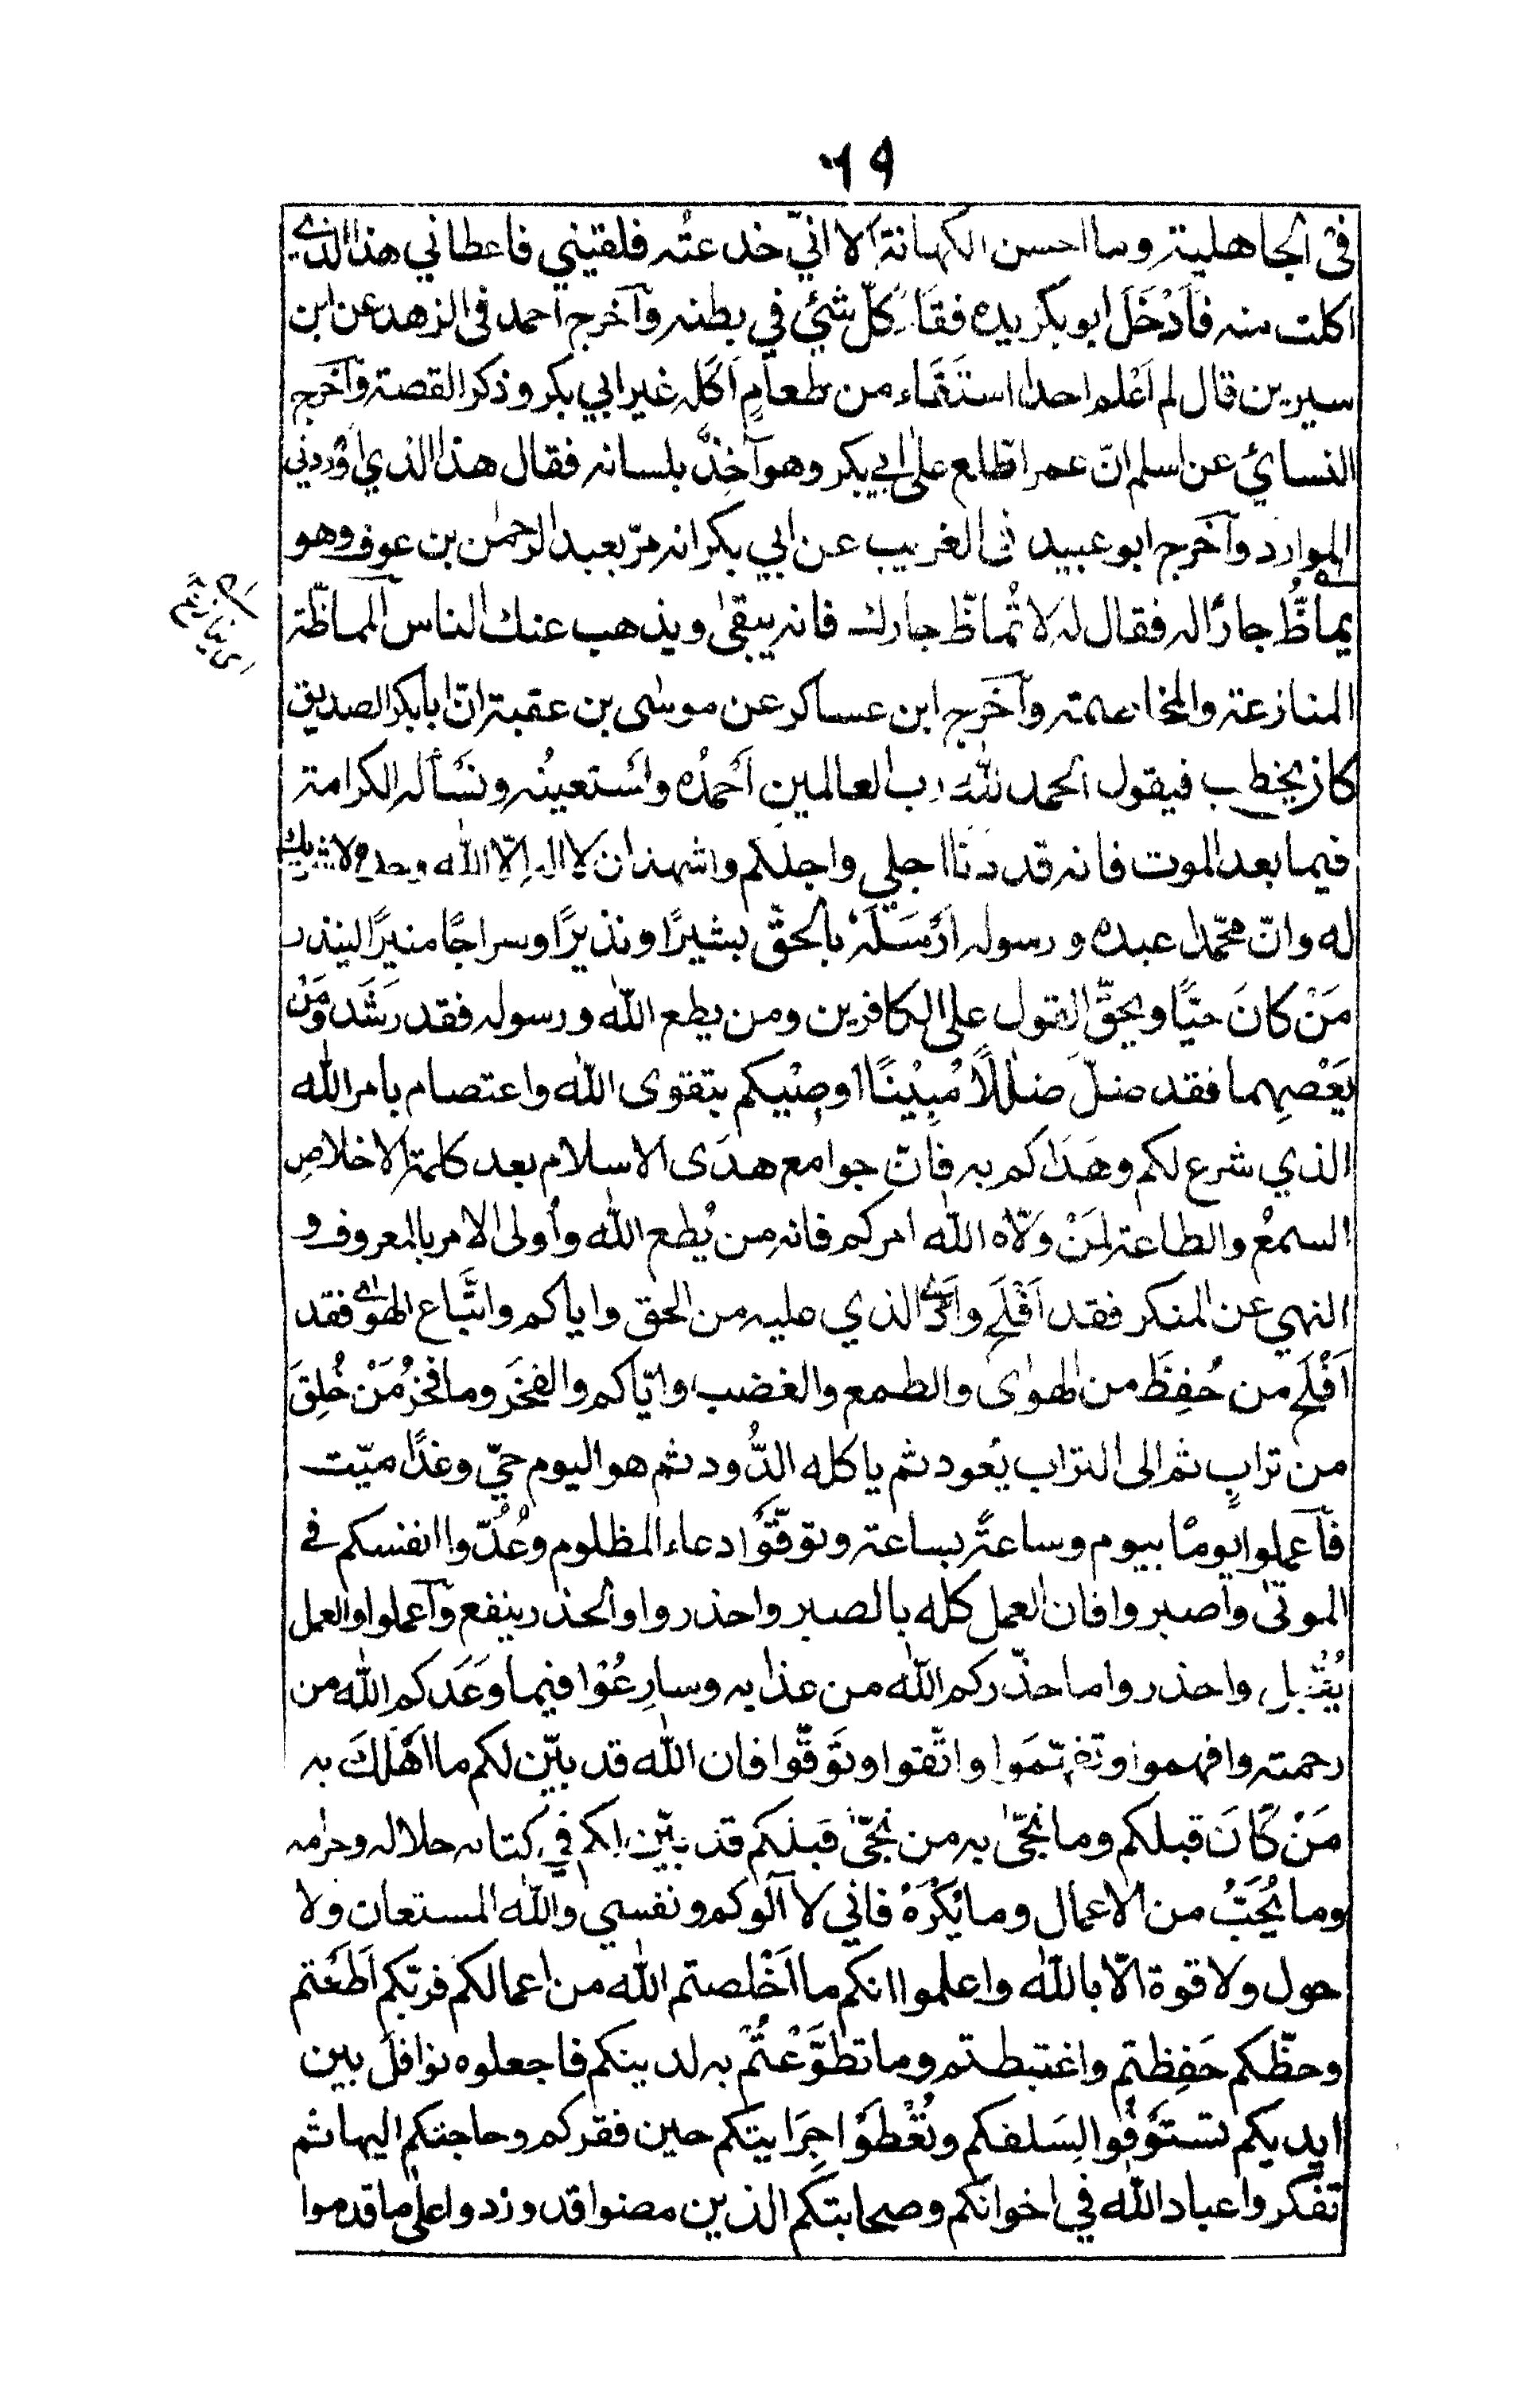 ٦٩
فى الجاهلية وما احسن الكهانة الا انّي خدعتُه فلقيني فاعطاني هذا الذي
اكلت منه فاَدْخَلَ ابو بكر يده فقَاءَ كلّ شئي في بطنه وآخرج احمد فى الزهد عن ابن
سيرين قال لم اَعْلم احدا استَقَاء من طعامٍ اَكَله غير ابي بكر وذكر القصة وآخرج
النسائي عن اسلم انّ عمر اطّلع على ابي بكر وهو آخِذٌ بلسانه فقال هذا الذي اَوْردني
الموارد وآخرج ابو عبيد فى الغريب عن ابي بكر انه مرّ بعبد الرحمٰن بن عوف وهو
يماظُّ جارًا له فقال له لا تُماظّ جارك فانه يبقىٰ ويذهب عنك الناس المماظّة
اى ينازع
المنازعة والمخاصمة وآخَرج ابن عساكر عن موسٰى بن عقبة انّ ابابكر الصديق
كان يخطب فيقول الحمد للّٰه رب العالمين اَحْمدُه واَسْتعينُه ونَسْأله الكرامة
فيما بعد الموت فانه قد دَنَا اجلي واجلكم واشهد ان لا اله اِلّا اللّٰه وحده لا شريك
له وانّ محمّدا عبده و رسوله اَرْسَلَهْ بالحقّ بشيرًا ونذيرًا وسراجًا منيرًا لينذر
مَنْ كانَ حيًّا ويحقَّ القول على الكافرين ومن يطع اللّٰه ورسوله فقد رَشَد ومَنْ
يَعْصِهما فقد ضلّ ضلٰلًا مُبِيْنًا اوصِيْكم بتقوى اللّٰه واعتصام بامر اللّٰه
الذي شرع لكم وهَدَاكم به فانّ جوامع هدَى الاسلام بعد كلمة الاخلاصِ
السمعُ والطاعة لمَنْ وَلّاه اللّٰه امركم فانه من يُطع اللّٰه واُولى الامر بالمعروف و
النهي عن المنكر فقد اَفْلَح واَدَّى الذي عليه من الحق واياكم واتَّباع الهوٰى فقد
اَفْلَح من حُفِظَ من الهوٰى والطمع والغضب وايّاكم والفَخَر وما فخرُ مَنْ خُلِقَ
من ترابٍ ثم الى التراب يَعُود ثم ياكله الدُّود ثم هو اليوم حيّ وغدًا ميّت
فآعملوا يومًا بيوم وساعةً بساعة وتوقّوْا دعاء المظلوم وعُدُّوا انفسكم في
الموتٰى واصبروا فان العمل كله بالصبر واحذروا والحذر ينفع وآعملوا والعمل
يُقْبل واحذروا ما حذّركم اللّٰه من عذابه وسارِعُوْا فيما وَعَدكم اللّٰه من
رحمته وافهموا وتفهّمَوا واتّقوا وتَوقّوا فان اللّٰه قد بيّن لكم ما اَهْلَكَ به
مَنْ كَانَ قبلكم وما نجّىٰ به من نجّىٰ قبلكم قد بيّن لكم في كتابه حلاله وحرامه
وما يُحَبُّ من الاعمال وما يُكْرَهُ فاني لا آلُوكم ونفسي واللّٰه المستعان ولا
حول ولا قوة الّا باللّٰه واعلموا انكم ما اَخْلصتم اللّٰه من اعمالكم فربّكم اَطَعْتم
وحظّكم حَفِظتم واغتبطتم وما تطوَّعْتُمْ به لدينكم فاجعلوه نوافل بين
ايديكم تستَوْفُوا لِسَلفكم وتُعْطوْا جِرَايتكم حين فقركم وحاجتكم اليها ثم
تفكروا عباد اللّٰه في اخوانكم وصحابتكم الذين مضوا قد وردوا على ما قدموا